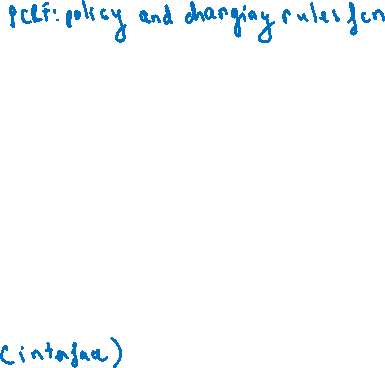 PCRF: policy and changing rules fcn
(interface)